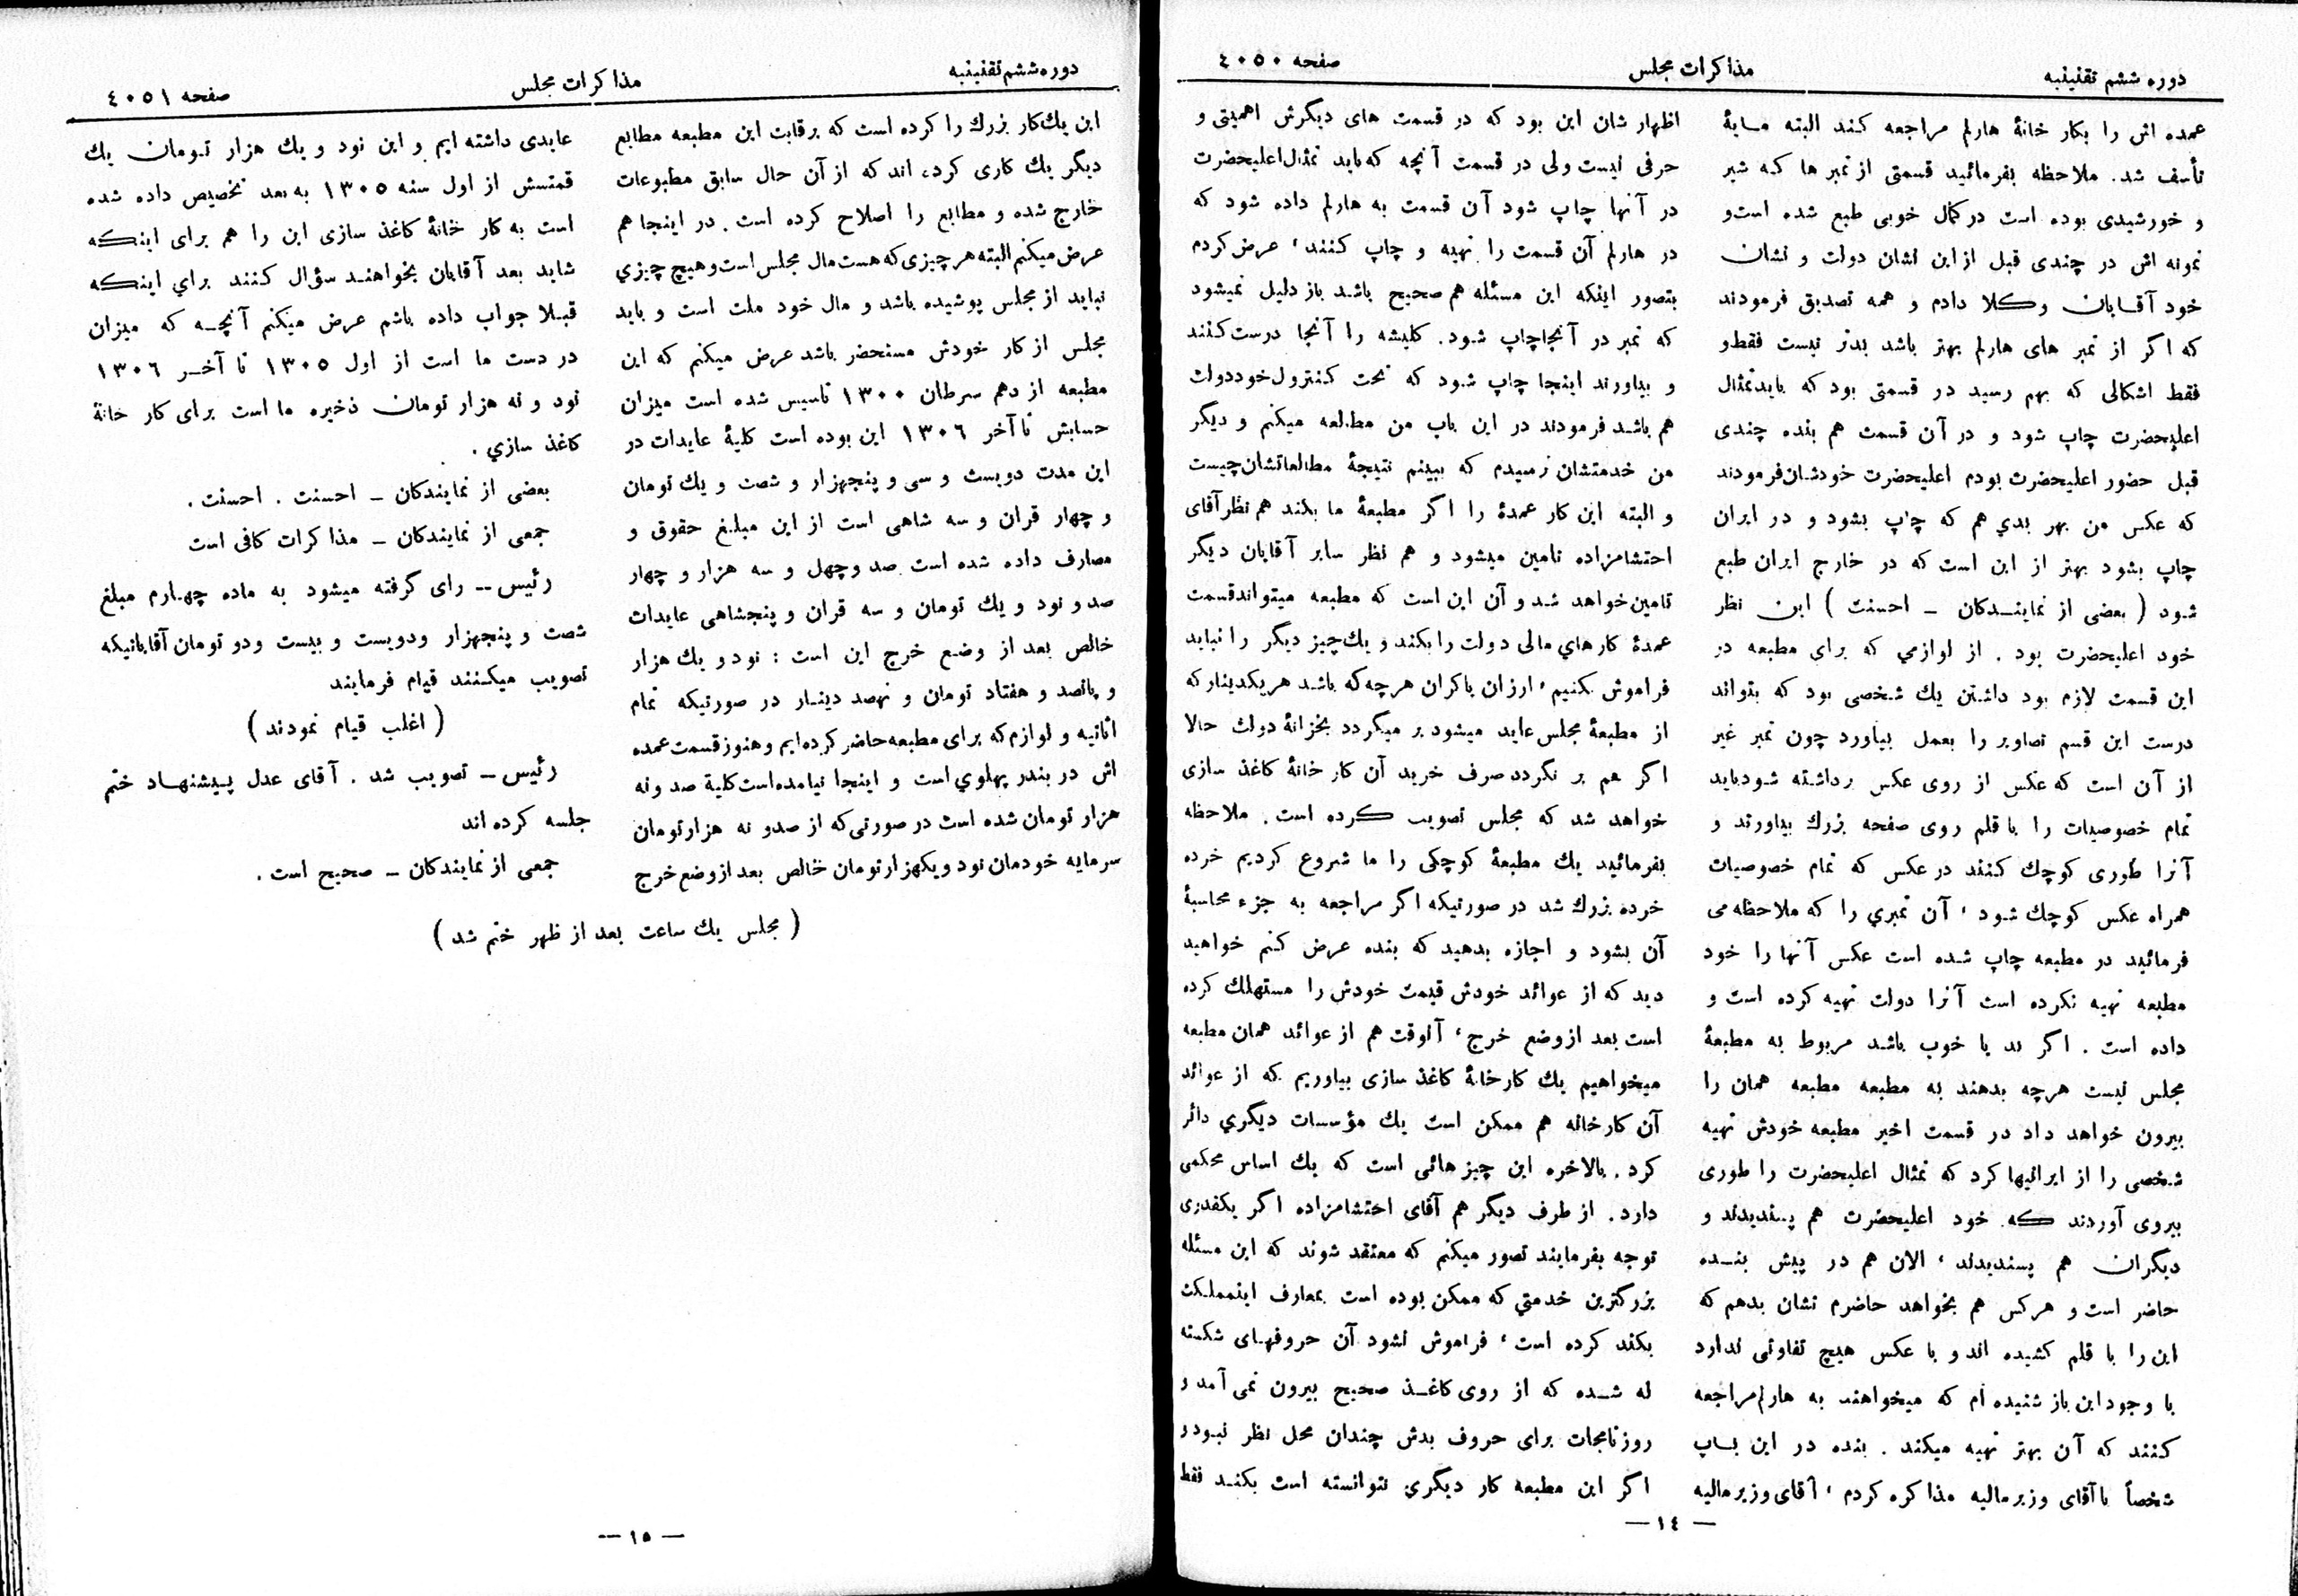 دوره ششم تقنینیه
مذاکرات مجلس
صفحه ٤٠٥٠
عمده اش را بکار خانهٔ هارلم مراجعه کنند البته مـایهٔ
تأسف شد. ملاحظه بفرمائید قسمتی از تمبر ها که شیر
و خورشیدی بوده است در کمال خوبی طبع شده است و
نمونه اش در چندی قبل از این نشان دولت و نشان
خود آقـایان وکلا دادم و همه تصدیق فرمودند
که اگر از تمبر های هارلم بهتر باشد بدتر نیست فقط و
فقط اشکالی که بهم رسید در قسمتی بود که باید تمثال
اعلیحضرت چاپ شود و در آن قسمت هم بنده چندی
قبل حضور اعلیحضرت بودم اعلیحضرت خودشان فرمودند
که عکس من بهر بدي هم که چاپ بشود و در ایران
چاپ بشود بهتر از این است که در خارج ایران طبع
شود ( بعضی از نماینـدکان ـ احسنت ) این نظر
خود اعلیحضرت بود . از لوازمي که برای مطبعه در
این قسمت لازم بود داشتن یك شخصی بود که بتواند
درست این قسم تصاویر را بعمل بیاورد چون تمبر غیر
از آن است که عکس از روی عکس برداشته شود باید
تمام خصوصیات را با قلم روی صفحه بزرك بیاورند و
آنرا طوری کوچك کنند در عکس که تمام خصوصیات
همراه عکس کوچك شود ، آن تمبري را که ملاحظه می
فرمائید در مطبعه چاپ شده است عکس آنها را خود
مطبعه تهیه نکرده است آنرا دولت تهیه کرده است و
داده است . اگر بد یا خوب باشد مربوط به مطبعهٔ
مجلس نیست هرچه بدهند به مطبعه مطبعه همان را
بیرون خواهد داد در قسمت اخیر مطبعه خودش تهیه
شخصی را از ایرانیها کرد که تمثال اعلیحضرت را طوری
بیروی آوردند که خود اعلیحضرت هم پسندیدند و
دیگران هم پسندیدند ، الان هم در پیش بنـده
حاضر است و هرکس هم بخواهد حاضرم نشان بدهم که
این را با قلم کشیده اند و با عکس هیچ تفاوتی ندارد
با وجود این باز شنیده ام که میخواهند به هارلم مراجعه
کنند که آن بهتر تهیه میکند . بنده در این بـاب
شخصاً با آقای وزیر مالیه مذاکره کردم ، آقای وزیر مالیه
اظهار شان این بود که در قسمت های دیگرش اهمیتی و
حرفی نیست ولی در قسمت آنچه که باید تمثال اعلیحضرت
در آنها چاپ شود آن قسمت به هارلم داده شود که
در هارلم آن قسمت را تهیه و چاپ کنند ، عرض کردم
بتصور اینکه این مسئله هم صحیح باشد باز دلیل نمیشود
که تمبر در آنجا چاپ شود. کلیشه را آنجا درست کنند
و بیاورند اینجا چاپ شود که تحت کنترول خود دولت
هم باشد فرمودند در این باب من مطالعه میکنم و دیگر
من خدمتشان نرسیدم که ببینم نتیجهٔ مطالعاتشان چیست
و البته این کار عمدهٔ را اگر مطبعهٔ ما بکند هم نظر آقای
احتشامزاده تامین میشود و هم نظر سایر آقایان دیگر
تامین خواهد شد و آن این است که مطبعه میتواند قسمت
عمدهٔ کار هاي مالی دولت را بکند و یك چیز دیگر را نباید
فراموش بکنیم ، ارزان یا کران هرچه که باشد هر یکدینار که
از مطبعهٔ مجلس عاید میشود بر میگردد بخزانهٔ دولت حالا
اگر هم بر نگردد صرف خرید آن کار خانهٔ کاغذ سازی
خواهد شد که مجلس تصویب کرده است. ملاحظه
بفرمائید یك مطبعهٔ کوچکی را ما شروع کردیم خرده
خرده بزرك شد در صورتیکه اگر مراجعه به جزء محاسبهٔ
آن بشود و اجازه بدهید که بنده عرض کنم خواهید
دید که از عوائد خودش قیمت خودش را مستهلك کرده
است بعد از وضع خرج ، آنوقت هم از عوائد همان مطبعه
میخواهیم یك کارخانهٔ کاغذ سازی بیاوریم که از عوائد
آن کارخانه هم ممکن است یك مؤسسات دیگري دائر
کرد. بالاخره این چیز هائی است که یك اساس محکمی
دارد. از طرف دیگر هم آقای احتشامزاده اگر یکقدری
توجه بفرمایند تصور میکنم که معتقد شوند که این مسئله
بزرگترین خدمتي که ممکن بوده است بمعارف اینمملکت
بکند کرده است ، فراموش نشود آن حروفهای شکسته
له شـده که از روی کاغـذ صحیح بیرون نمی آمد و
روزنامجات برای حروف بدش چندان محل نظر نبود و
اگر این مطبعه کار دیگري نتوانسته است بکنـد فقط
— ١٤ —
دوره ششم تقنینیه
مذاکرات مجلس
صفحه ٤٠٥١
این یك کار بزرك را کرده است که برقابت این مطبعه مطابع
دیگر یك کاری کرده اند که از آن حال سابق مطبوعات
خارج شده و مطابع را اصلاح کرده است. در اینجا هم
عرض میکنم البته هر چیزی که هست مال مجلس است و هیچ چیزي
نباید از مجلس پوشیده باشد و مال خود ملت است و باید
مجلس از کار خودش مستحضر باشد عرض میکنم که این
مطبعه از دهم سرطان ١٣٠٠ تاسیس شده است میزان
حسابش تا آخر ١٣٠٦ این بوده است کلیهٔ عایدات در
این مدت دویست و سی و پنجهزار و شصت و یك تومان
و چهار قران و سه شاهی است از این مبلغ حقوق و
مصارف داده شده است صد و چهل و سه هزار و چهار
صد و نود و یك تومان و سه قران و پنجشاهی عایدات
خالص بعد از وضع خرج این است : نود و یك هزار
و پانصد و هفتاد تومان و نهصد دینـار در صورتیکه تمام
اثاثیه و لوازم که برای مطبعه حاضر کرده ایم و هنوز قسمت عمده
اش در بندر پهلوي است و اینجا نیامده است کلیهٔ صد و نه
هزار تومان شده است در صورتی که از صد و نه هزار تومان
سرمایه خودمان نود و یکهزار تومان خالص بعد از وضع خرج
عایدی داشته ایم و این نود و یك هزار تـومان یك
قمتسش از اول سنه ١٣٠٥ به بعد تخصیص داده شده
است به کار خانهٔ کاغذ سازی این را هم برای اینکه
شاید بعد آقایان بخواهنـد سؤال کنند براي اینکه
قبـلا جواب داده باشم عرض میکنم آنچـه که میزان
در دست ما است از اول ١٣٠٥ تا آخـر ١٣٠٦
نود و نه هزار تومان ذخیره ما است برای کار خانهٔ
کاغذ سازي .
بعضی از نمایندکان ـ احسنت . احسنت .
جمعی از نمایندکان ـ مذاکرات کافی است
رئیس ــ رای گرفته میشود به ماده چهـارم مبلغ
شصت و پنجهزار ودویست و بیست ودو تومان آقایانیکه
تصویب میکنند قیام فرمایند
( اغلب قیام نمودند )
رئیس ـ تصویب شد . آقای عدل پـیشنهـاد ختم
جلسه کرده اند
جمعی از نمایندکان ـ صحیح است .
( مجلس یك ساعت بعد از ظهر ختم شد )
— ١٥ —